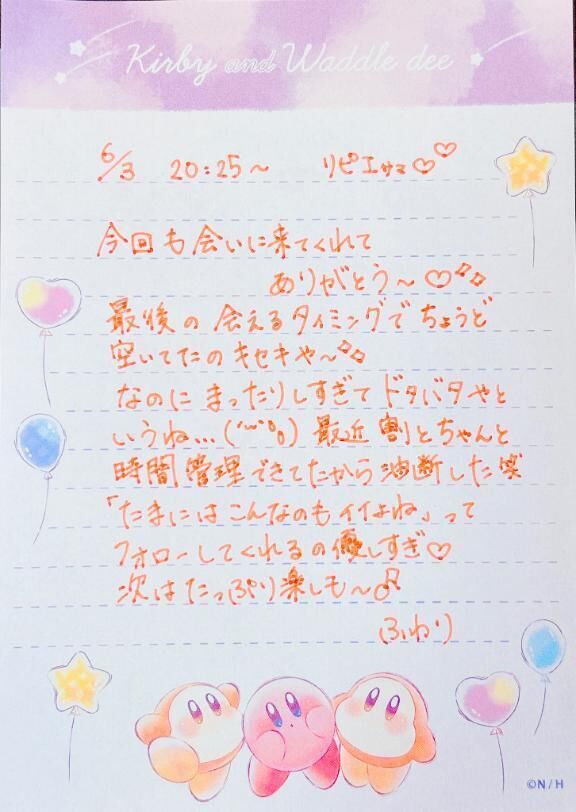 Kirby and Waddle dee
6/3 20:25～ リピエサマ♡♡
今回も会いに来てくれて
ありがとう～♡
最後の会えるタイミングでちょうど
空いてたのキセキや～
なのにまったりしすぎてドタバタやと
いうね…(´˙꒳˙`%) 最近割とちゃんと
時間管理できてたから油断した笑
「たまにはこんなのもイイよね」って
フォローしてくれるの優しすぎ♡
次はたっぷり楽しも～♂
(ふわり)
©N/H